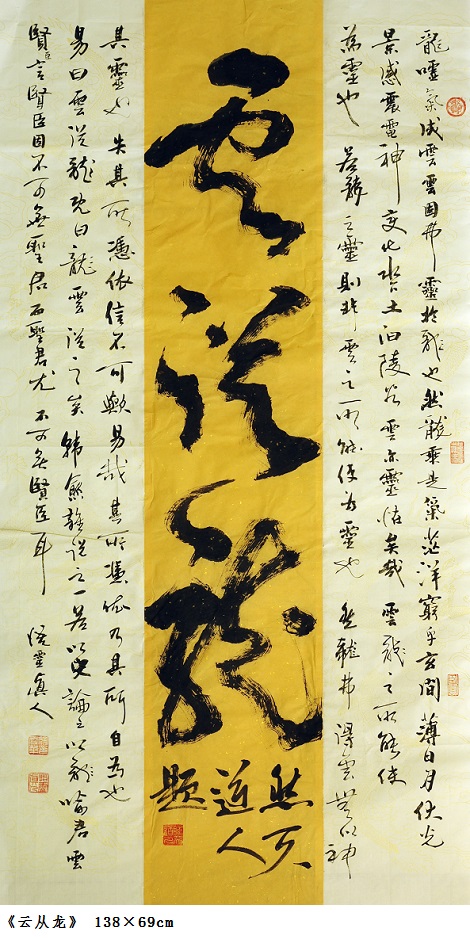 龍噓氣成雲雲固弗靈於龍也然龍乘是氣茫洋窮乎玄間薄日月伏光
景感震電神變化水下土汩陵谷雲亦靈怪矣哉雲龍之所能使
為靈也若龍之靈則非雲之所能使為靈也然龍弗得雲無以神
雲從龍
道人
題
其靈也失其所憑依信不可歟易哉其所憑依乃其所自為也
易曰雲從龍既曰龍雲從之矣韓愈雜說之一若以史論之以龍喻君雲
賢臣言賢臣固不可無聖君而聖君尤不可無賢臣耳
真人
《云从龙》 138×69cm